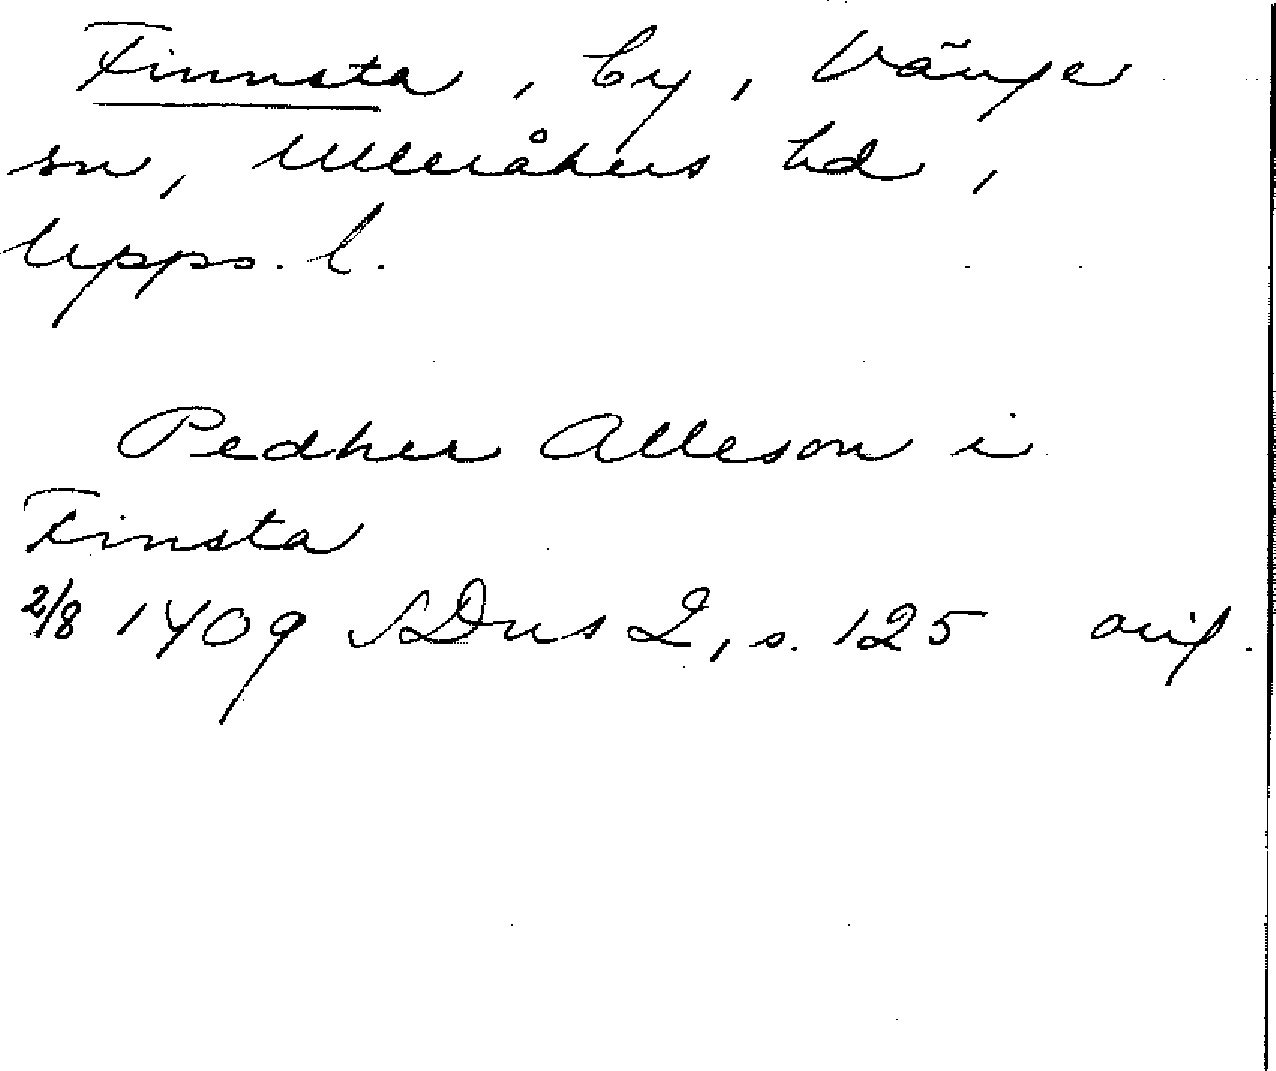 Finnsta, by, Vänge
sn, Ulleråkers hd,
Upps. l.
Pedher Alleson i
Finsta
2/8 1409 SDns 2, s. 125 orig.